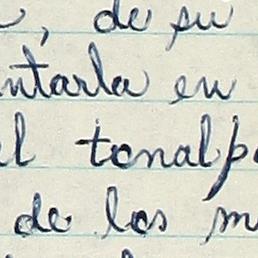 , de su
ntarla en
el tonalpo
de los m